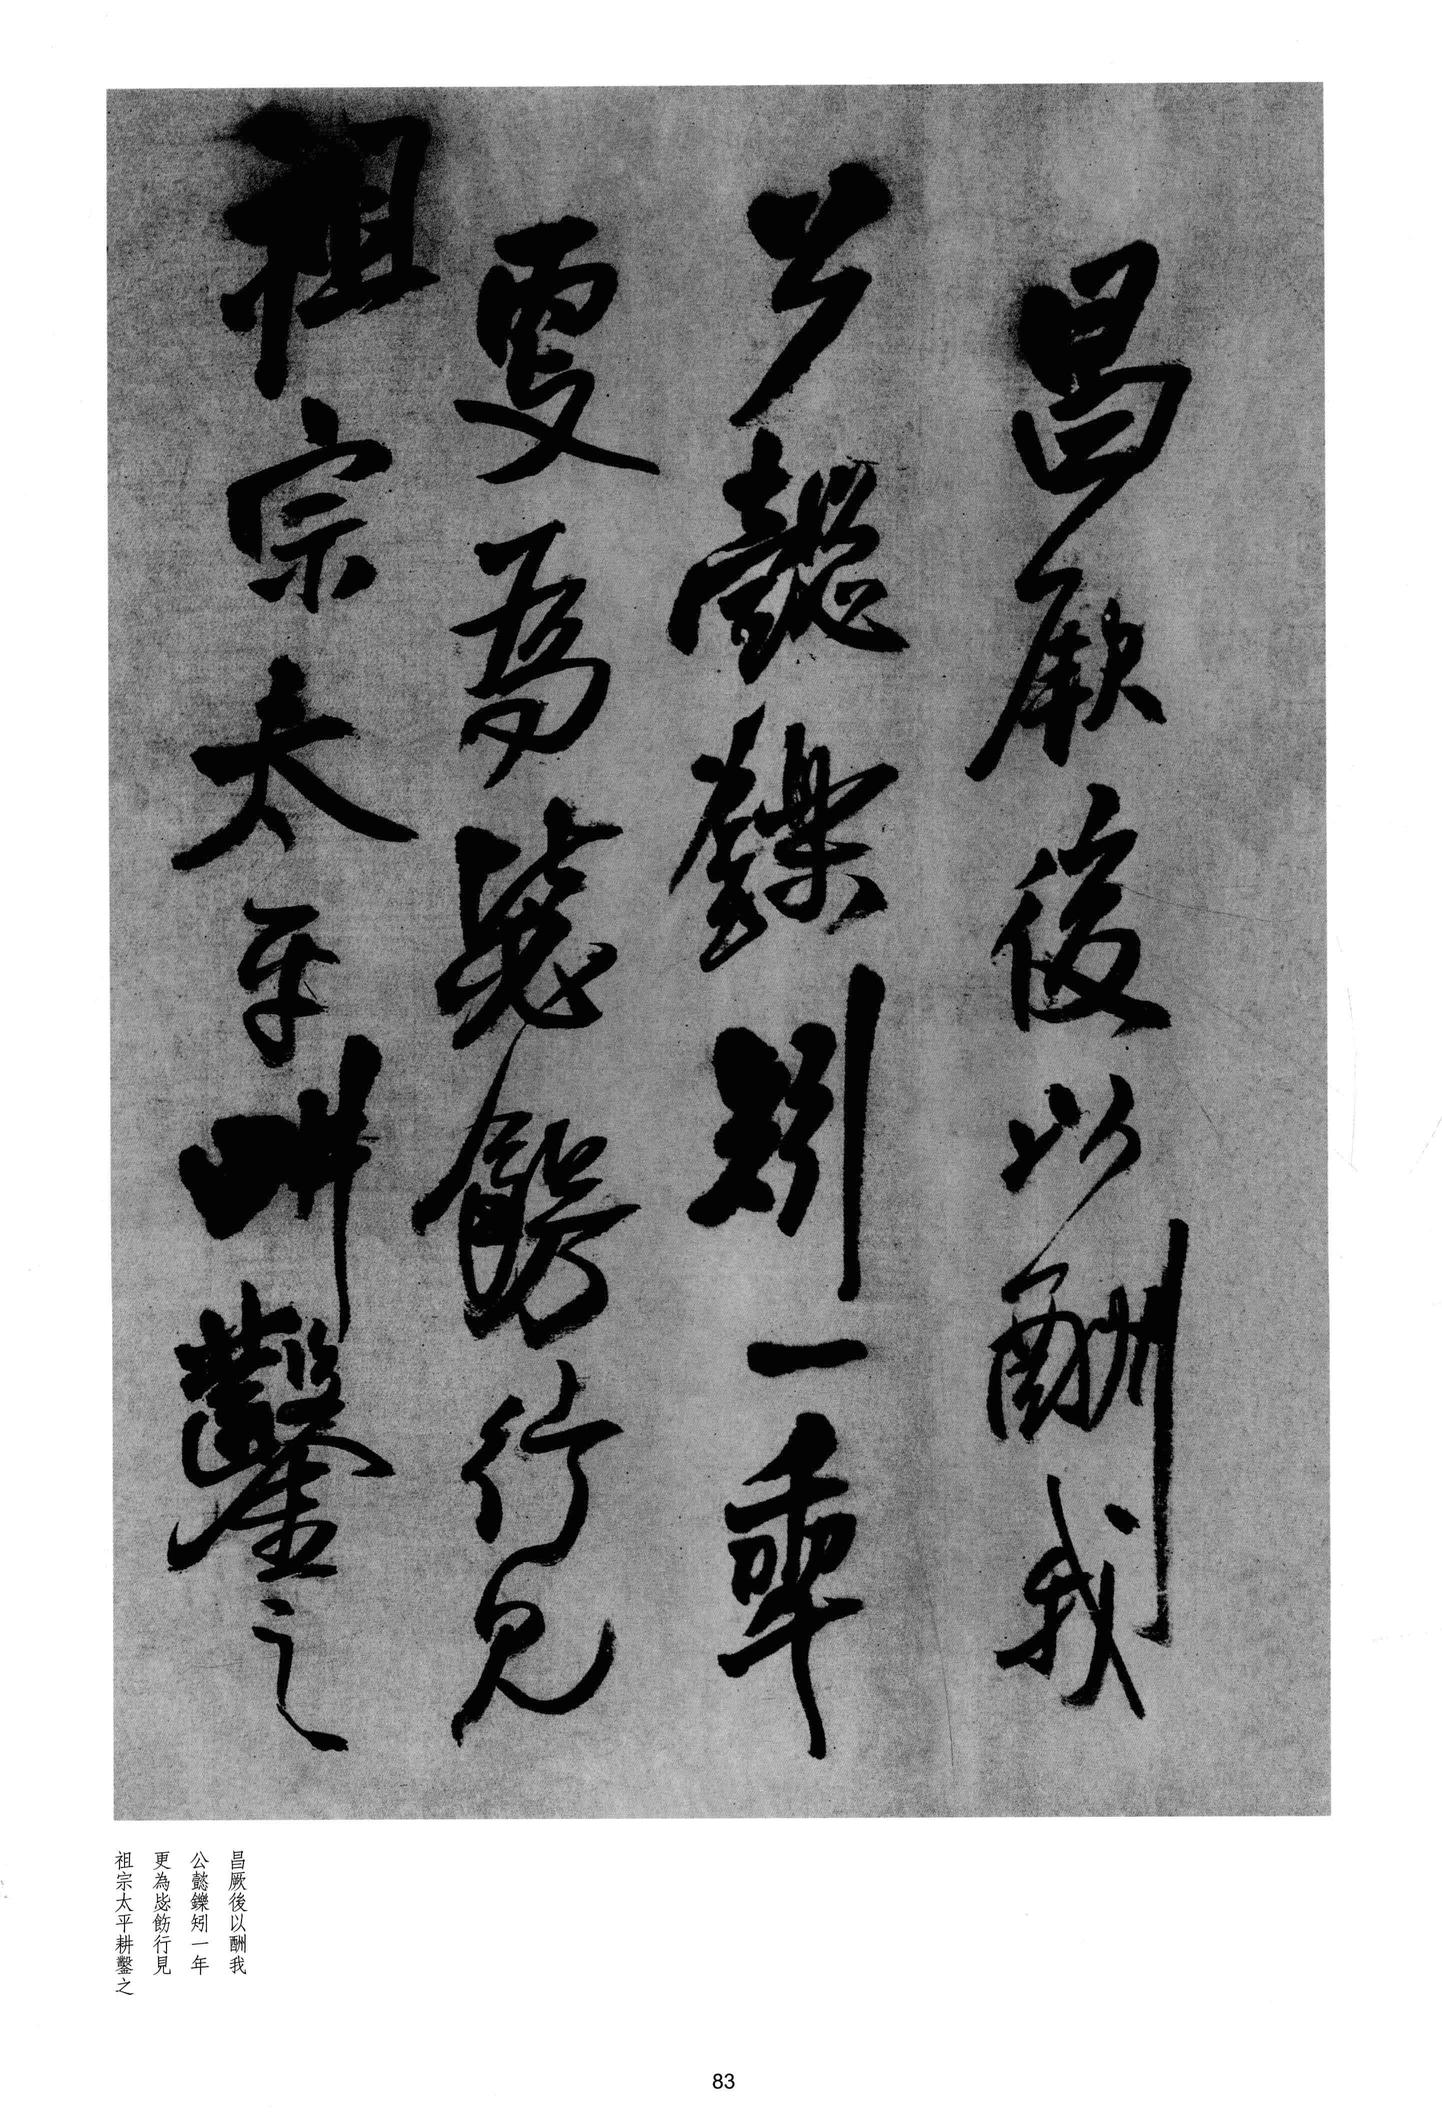 昌厥後以酬我
公懿鑠矧一年
更為毖飭行見
祖宗太平耕鑿之
昌厥後以酬我
公懿鑠矧一年
更為毖飭行見
祖宗太平耕鑿之
83